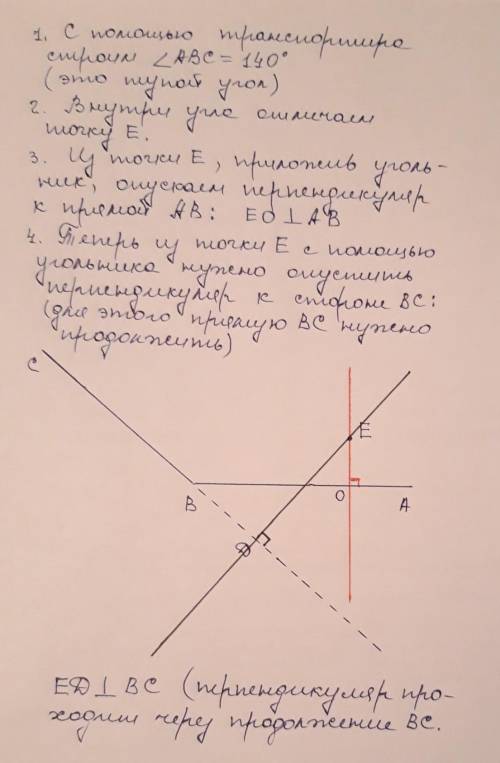 1. С помощью транспортира
строим ∠ABC = 140°
(это тупой угол)
2. Внутри угла отмечаем
точку E.
3. Из точки E, приложив уголь-
ник, опускаем перпендикуляр
к прямой AB: EO ⊥ AB
4. Теперь из точки E с помощью
угольника нужно опустить
перпендикуляр к стороне BC:
(для этого прямую BC нужно
продолжить)
C
E
B
O
A
D
ED ⊥ BC (перпендикуляр про-
ходит через продолжение BC.